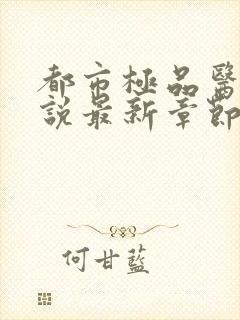 都市極品醫
說最新章節
何甘藍